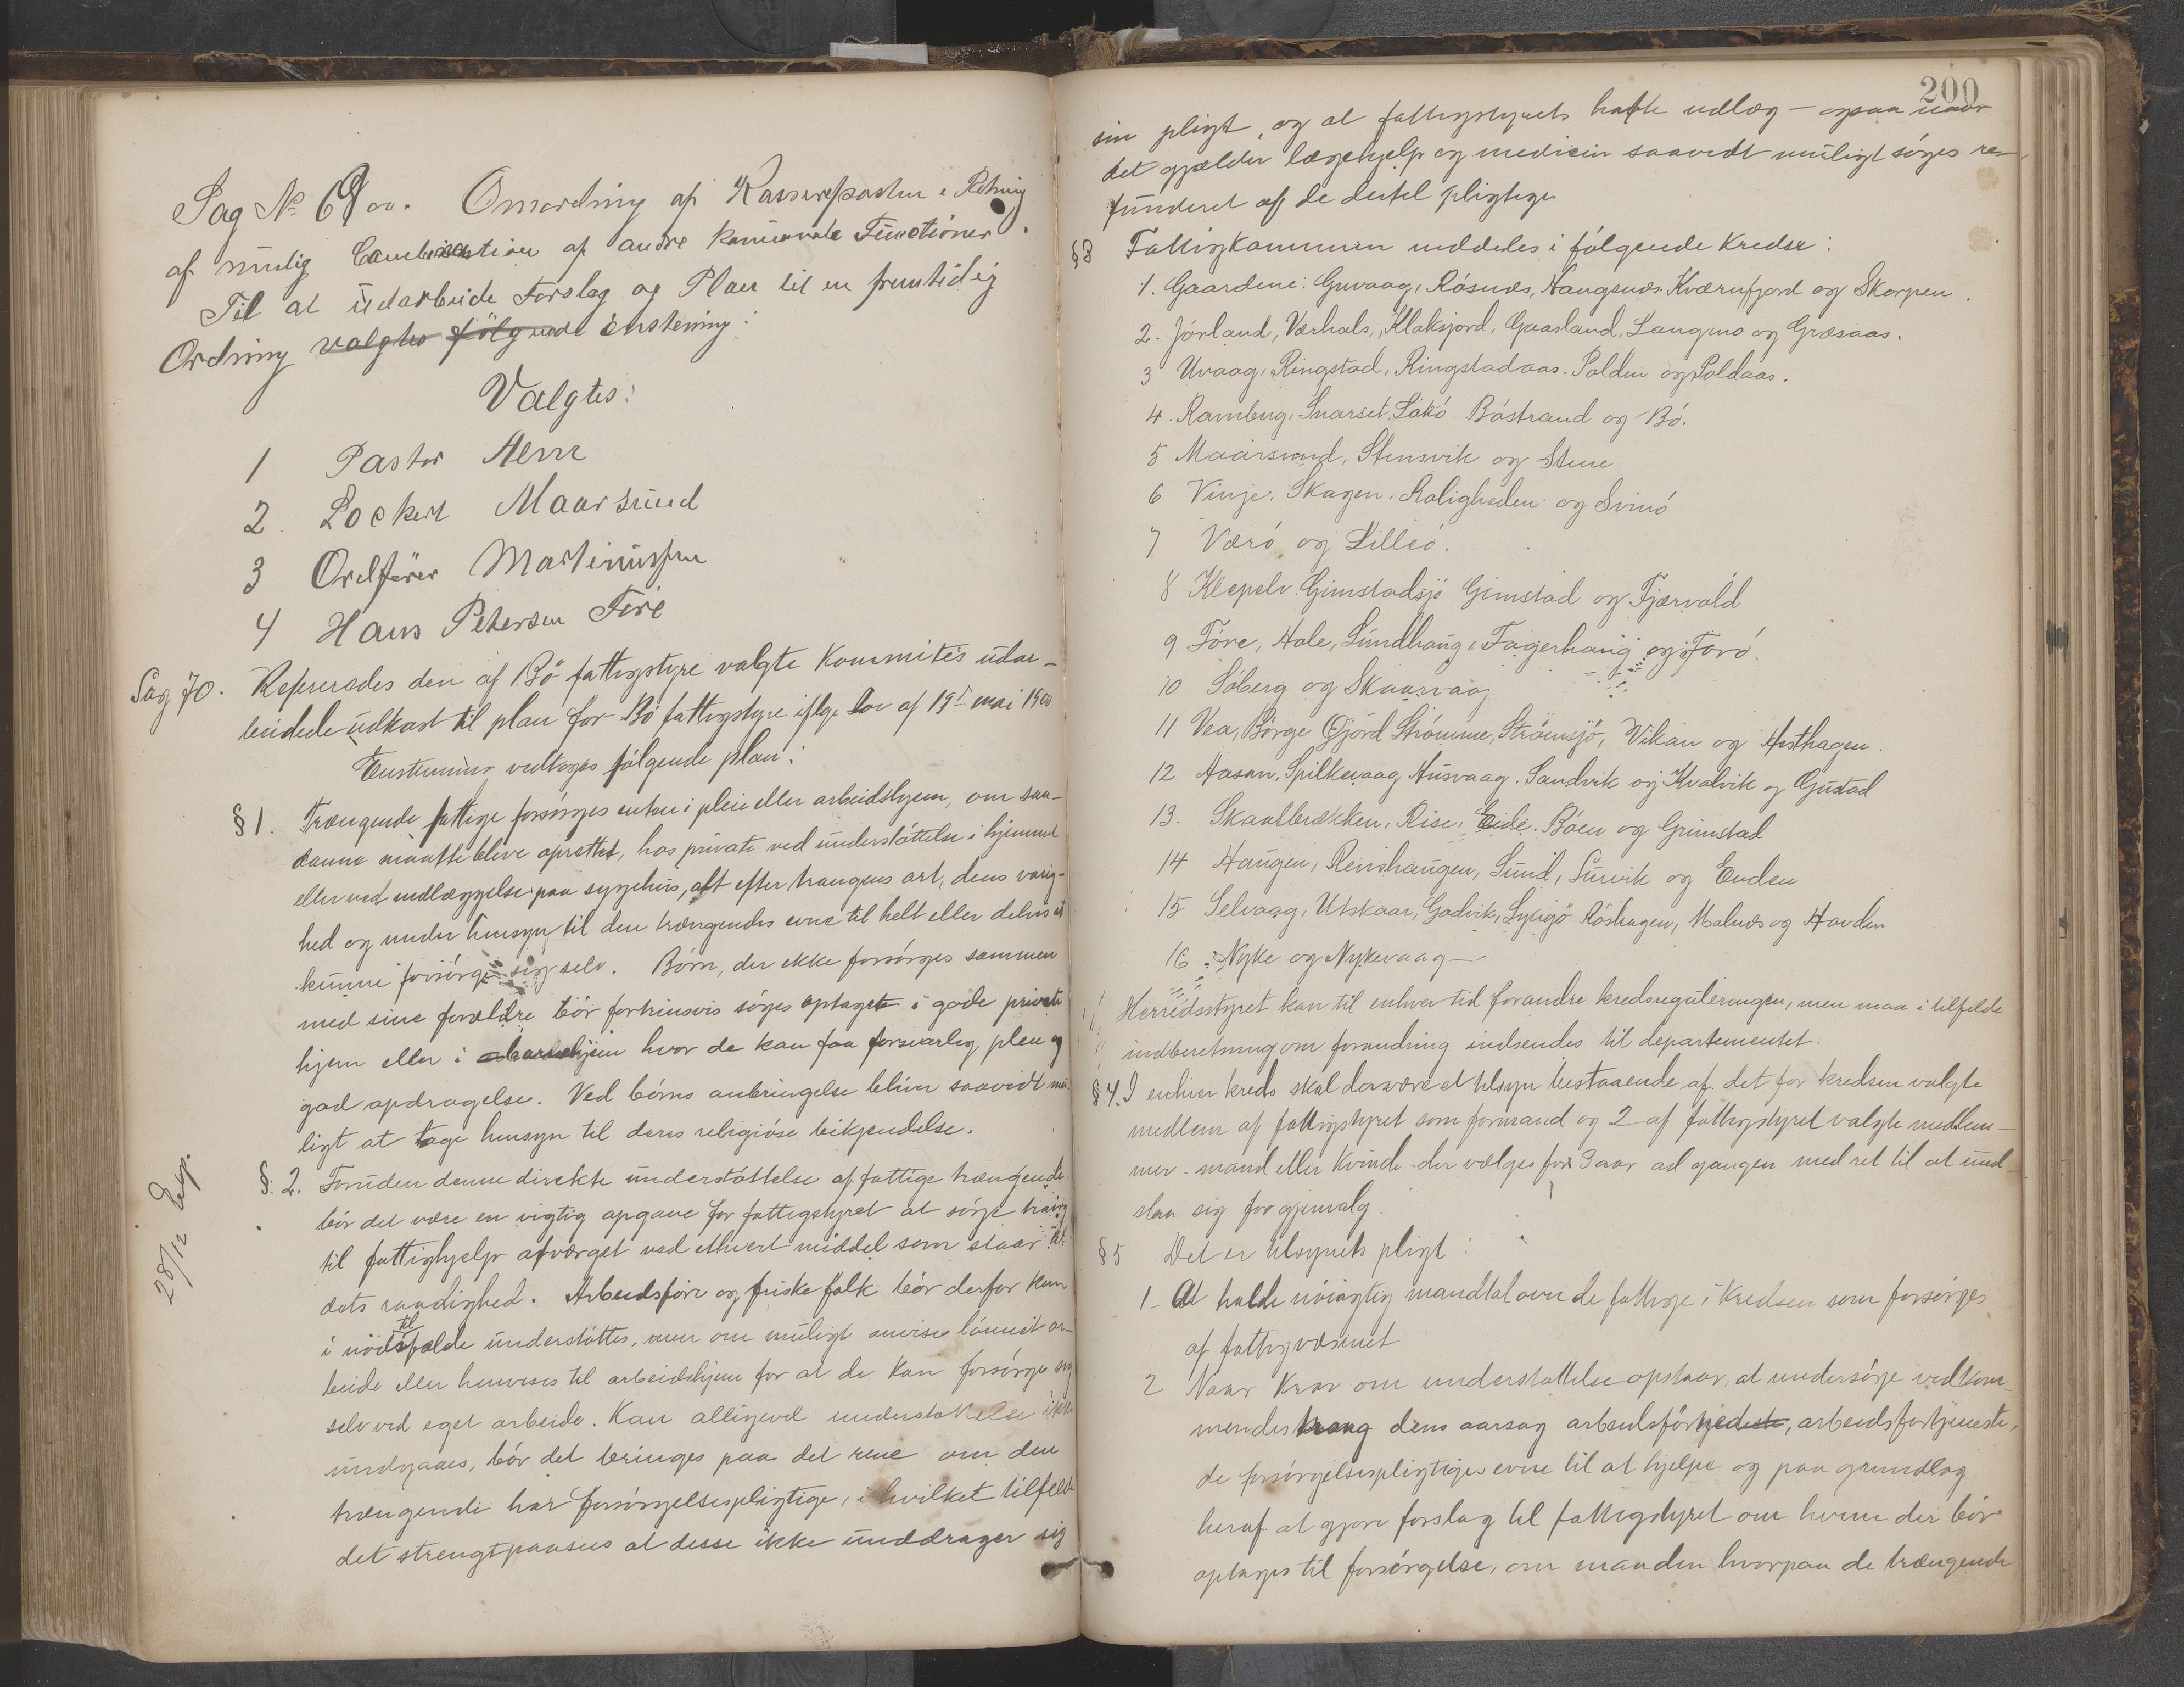 Sag No 69/00. Omordning af Kassererposten i Retning
af mulig Combination af andre kommunale Functioner.
Til at udarbeide Forslag og Plan til en fremtidig
Ordning valgtes følgende enstemig:
Valgtes:
1 Pastor Alm
2 Lockert Maarsund
3 Ordfører Martinussen
4 Hans Petersen Føre
Sag 70. Refereredes den af Bö fattigstyre valgte Kommités udar-
beidede udkast til plan for Bö fattigstyre iflge Lov af 19de mai 1900
Enstemmig vedtoges følgende plan:
§ 1. Trængende fattige forsørges enten i pleie eller arbeidshjem, om saa-
danne maatte blive oprettet, hos private ved understøttelse i hjemmet
eller ved indlæggelse paa sygehus, alt efter trangens art, dens varig-
hed og under hensyn til den trængendes evne til helt eller delvis at
kunne forsørge sig selv. Børn, der ikke forsørges sammen
med sine forældre bør fortrinsvis søges optaget i gode private
hjem eller i barnehjem hvor de kan faa forsvarlig pleie og
god opdragelse. Ved børns anbringelse bliver saavidt mu-
ligt at tage hensyn til deres religiøse bekjendelse.
28/12 Exp.
§. 2. Foruden denne direkte understøttelse af fattige trængende
bör det være en vigtig opgave for fattigstyret at sørge trang
til fattighjelp afværget ved ethvert middel som staar til
dets raadighed. Arbeidsføre og friske folk bör derfor kun
i nødstilfælde understøttes, men om muligt anvises lønnet ar-
beide eller henvises til arbeidshjem for at de kan forsørge sig
selv ved eget arbeide. Kan alligevel understøttelse ikke
undgaaes, bör det bringes paa det rene om den
trængende har forsørgelsespligtige, i hvilket tilfelde
det strengt paasees at desse ikke unddrager sig
200
sin pligt, og at fattigstyrets hafte udlæg – ogsaa naar
det gjælder lægehjelp og medicin saavidt muligt søges re-
funderet af de dertil pligtige
§3 Fattigkommunen inddeles i følgende Kredse:
1. Gaardene: Guvaag, Røsnæs, Haugsnæs. Kværnfjord og Skorpen.
2. Jørland, Værhals, Klaksjord, Gaasland, Langmo og Græsaas.
3 Uvaag, Ringstad, Ringstadaas. Polden og Poldaas.
4. Ramberg, Snarset, Løkø. Bøstrand og Bø.
5 Maarsund, Steinsvik og Stene
6 Vinje. Skagen. Roligheden og Svinø
7 Værø og Lilleø.
8 Klepelv. Gimstadsjø Gimstad og Fjærvold
9 Føre, Hole, Lundhaug, Fagerhaug og Forø.
10 Søberg og Skaarvaag
11 Vea, Børge Gjørd Strømme, Strømsjø, Vikan og Hesthagen.
12 Aasan, Spilkevaag Husvaag. Sandvik og Kvalvik og Gustad
13. Skaalbrækken, Rise. Eide. Bøen og Grimstad
14 Haugen, Reinshaugen, Sund, Survik og Enden
15 Selvaag, Utskaar, Godvik, Lyngø Røshagen, Malnæs og Hovden
16 Nyke og Nykevaag –
Herredsstyret kan til enhver tid forandre kredsreguleringen, men maa i tilfelde
indberetning om forandring indsendes til departementet.
§.4. I enhver kreds skal der være et tilsyn bestaaende af det for kredsen valgte
medlem af fattigstyret som formand og 2 af fattigstyret valgte medlem-
mer – mand eller Kvinde der vælges for 3 aar ad gangen med ret til at und-
slaa sig for gjenvalg.
§5 Det er tilsynets pligt:
1 – At holde nøiagtig mandtal over de fattige i Kredsen som forsørges
af fattigvæsenet
2 Naar Krav om understøttelse opstaar, at undersøge vedkom-
mendes trang dens aarsag arbeidsførhed, arbeidsfortjeneste,
de forsørgelsespligtiges evne til at hjelpe og paa grundlag
heraf at gjøre forslag til fattigstyret om hvem der bør
optages til forsørgelse, om maaden hvorpaa de trængende